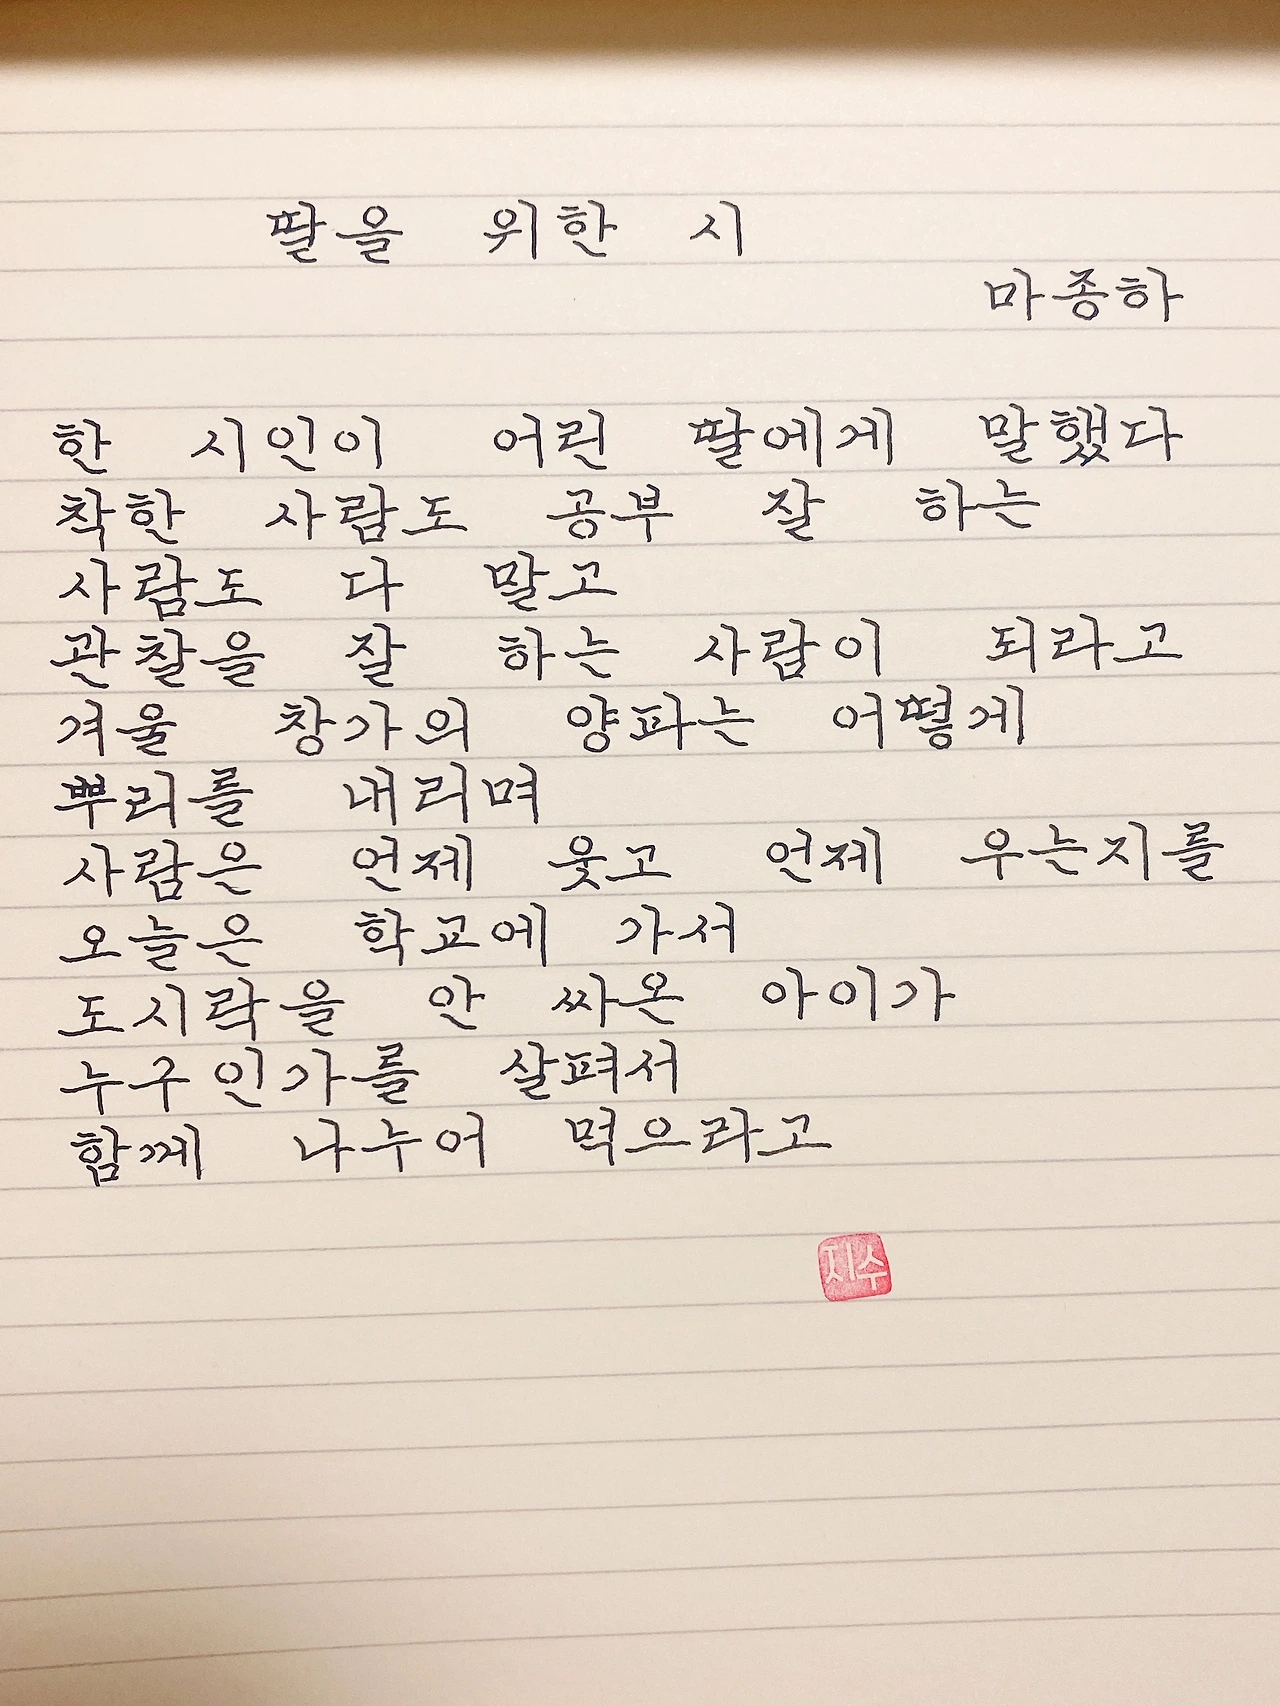 딸을 위한 시
마종하
한 시인이 어린 딸에게 말했다
착한 사람도 공부 잘 하는
사람도 다 말고
관찰을 잘 하는 사람이 되라고
겨울 창가의 양파는 어떻게
뿌리를 내리며
사람은 언제 웃고 언제 우는지를
오늘은 학교에 가서
도시락을 안 싸온 아이가
누구인가를 살펴서
함께 나누어 먹으라고
지수